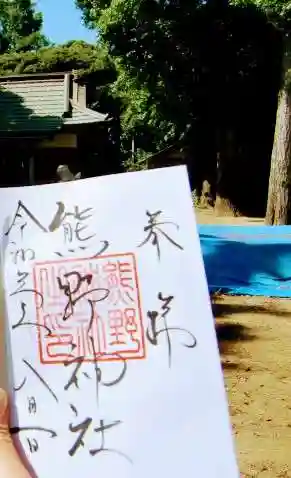 奉拝
熊野神社
熊野
神社
之印
令和 年八月一日